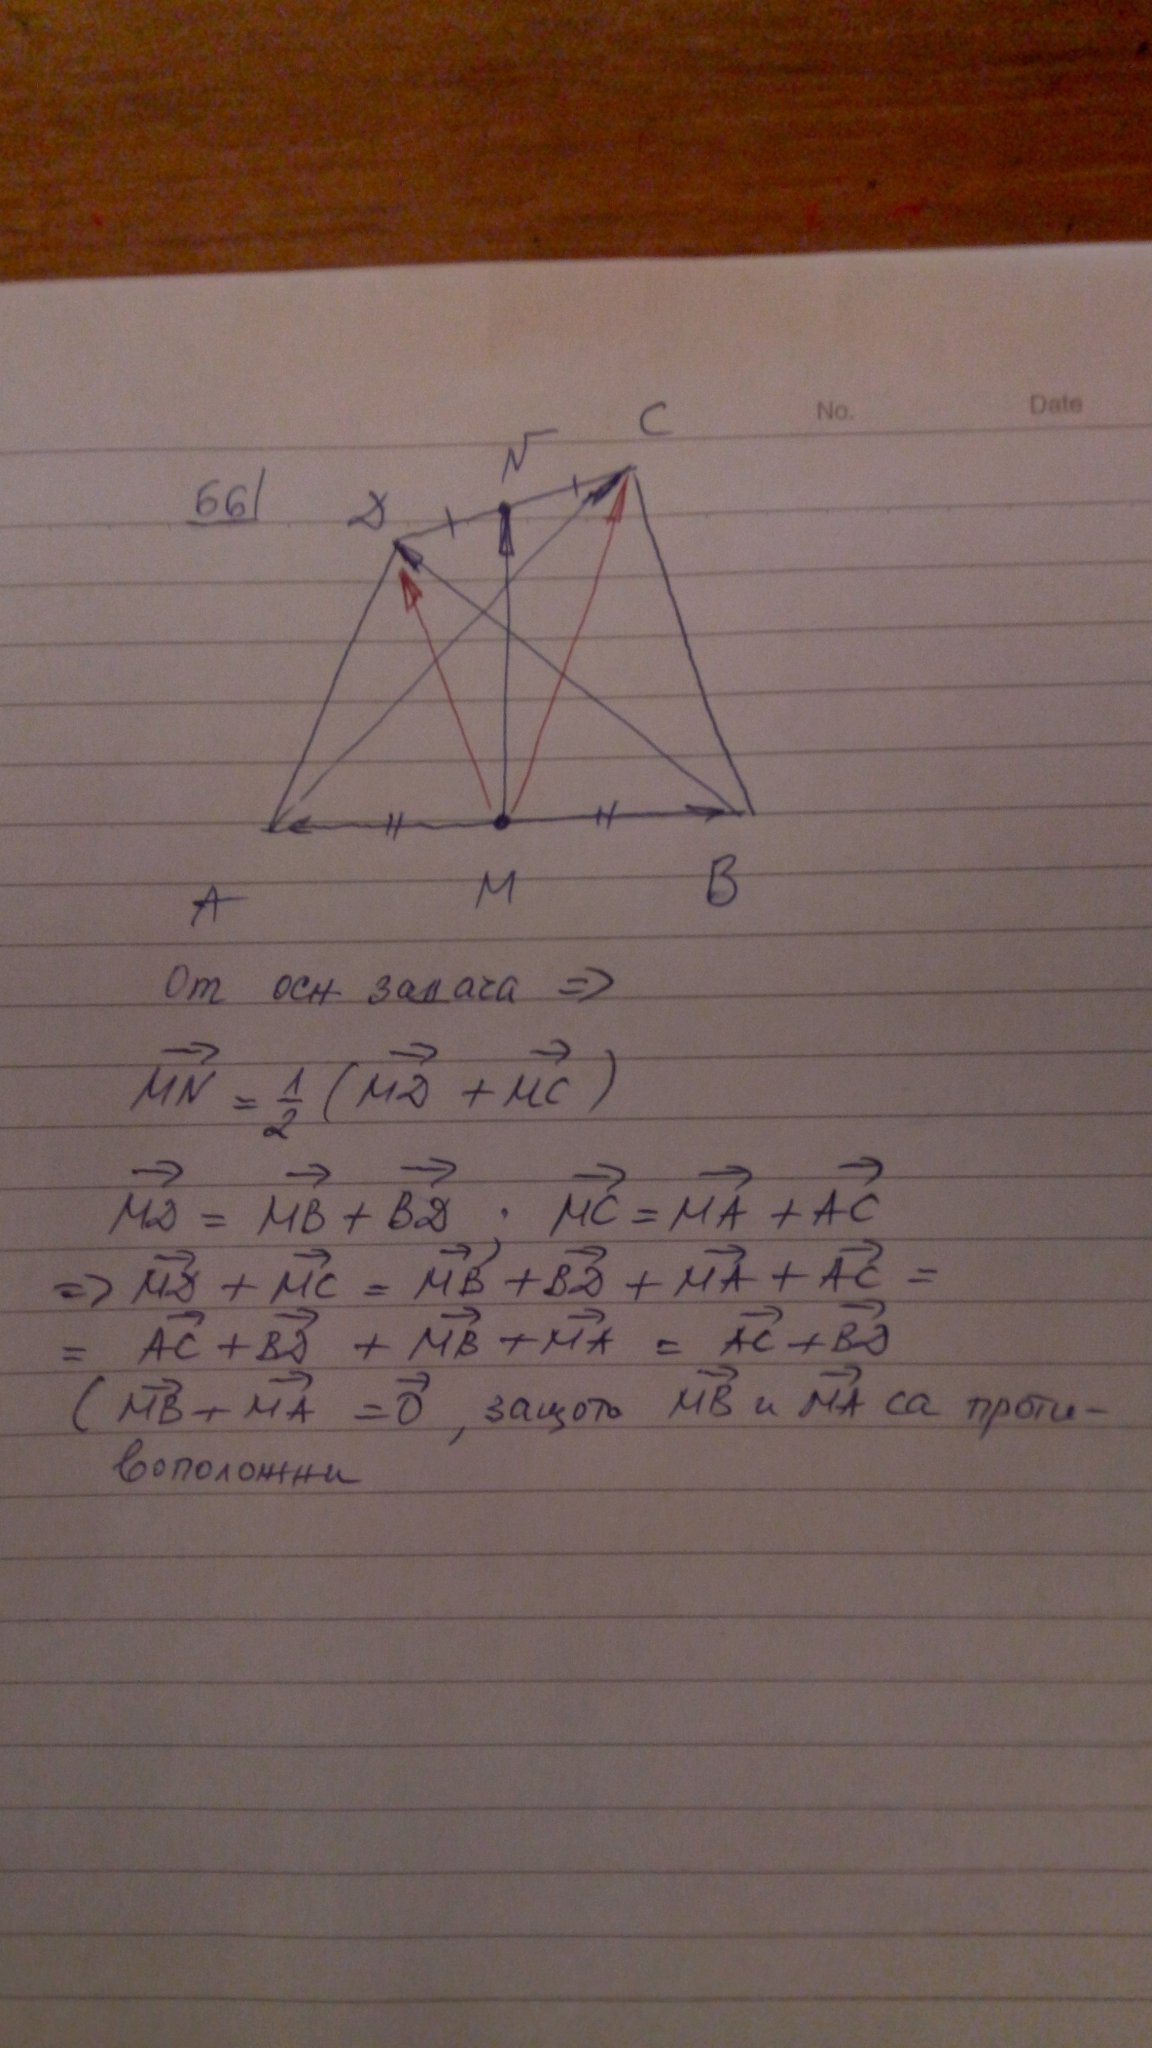 No. Date
N C
66/ D
A M B
От осн задача =>
MN = 1/2 (MD + MC)
MD = MB + BD ; MC = MA + AC
=> MD + MC = MB + BD + MA + AC =
= AC + BD + MB + MA = AC + BD
(MB + MA = 0, защото MB и MA са проти-
воположни